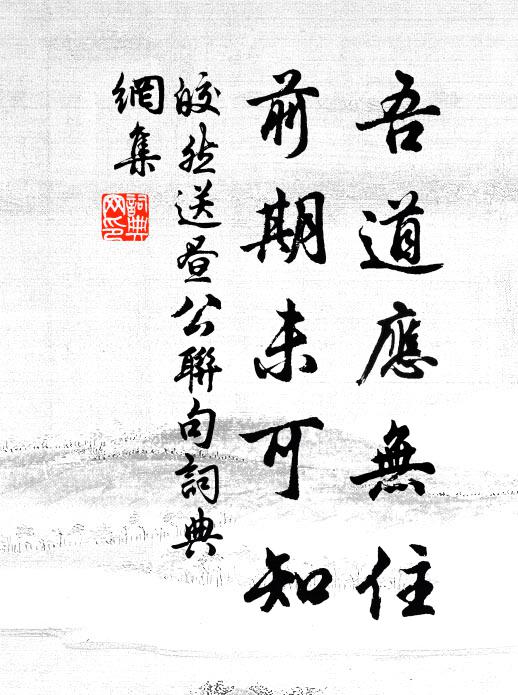 吾道應無住
前期未可知
皎然送晝公聯句詞典
網集
詞典
网印